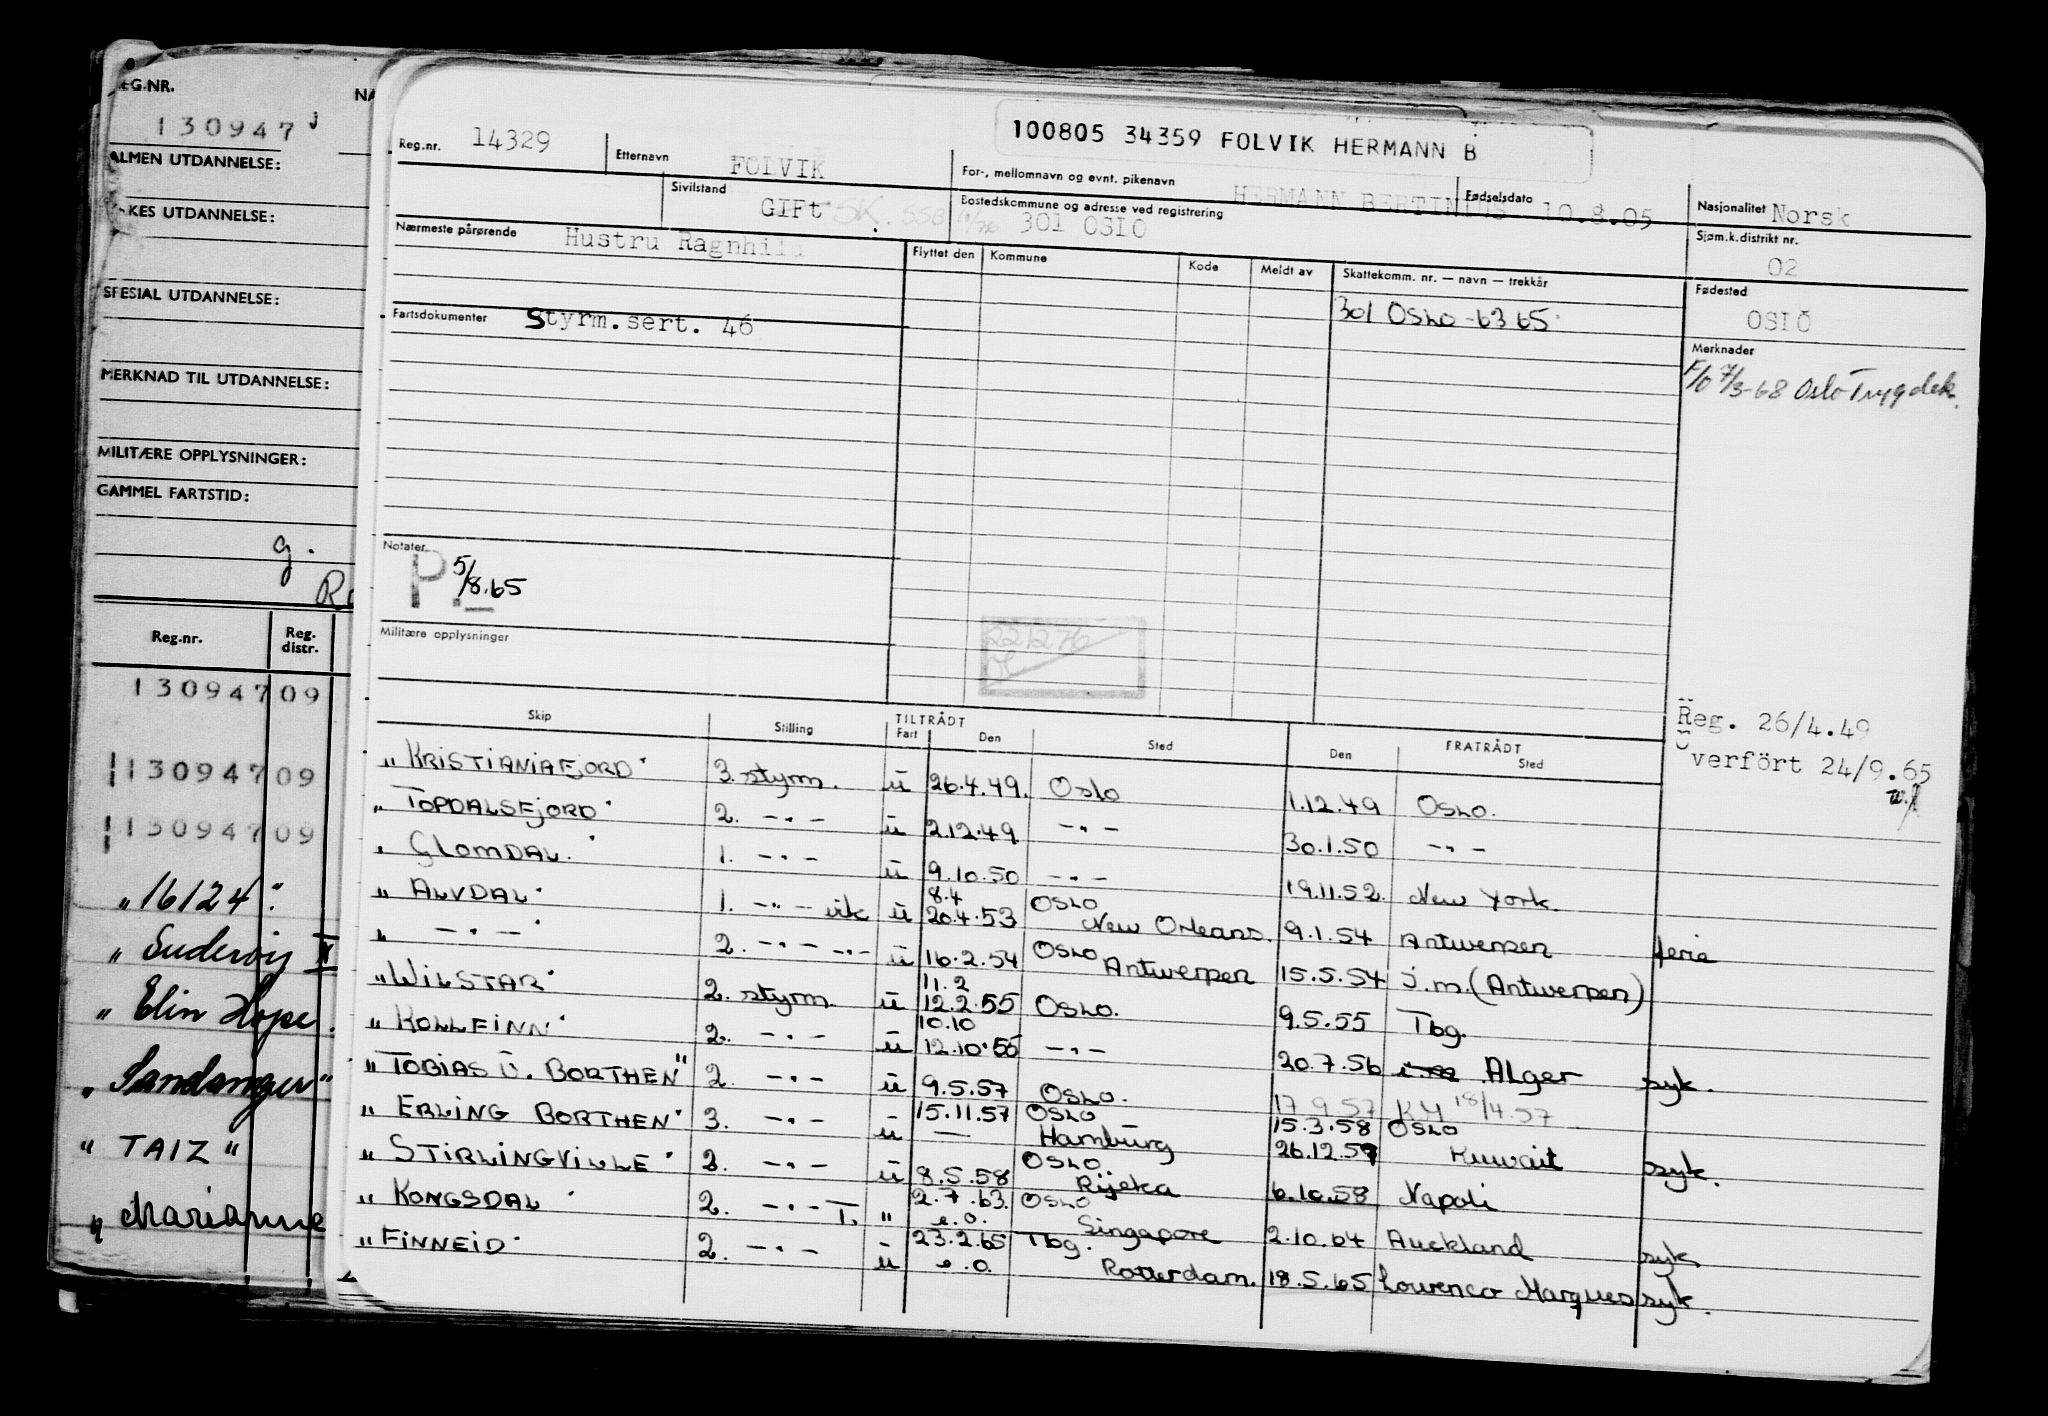 REG.NR.
NA
130947 j
ALMEN UTDANNELSE:
KES UTDANNELSE:
SPESIAL UTDANNELSE:
MERKNAD TIL UTDANNELSE:
MILITÆRE OPPLYSNINGER:
GAMMEL FARTSTID:
g.
Reg.nr. Reg. distr.
130947 09
130947 09
130947 09
"16124"
"Suderøy
"Elin Hope.
"Sandanger"
"TAIZ"
"Marianne
100805 34359 FOLVIK HERMANN B
Reg.nr. 14329 Etternavn FOLVIK For-, mellomnavn og evnt. pikenavn HERMANN BERTINIUS Fødselsdato 10.8.05 Nasjonalitet Norsk
Sivilstand GIFt SK. SSB Bostedskommune og adresse ved registrering 301 OSlO Sjøm.k.distrikt nr. 02
Nærmeste pårørende Hustru Ragnhild Flyttet den Kommune Kode Meldt av Skattekomm. nr. — navn — trekkår Fødested OSlO
301 OSLO -63 65
Fartsdokumenter Styrm.sert. 46
Merknader
F/O 7/3-68 Oslo Trygdek.
Notater
P. 5/8.65
Militære opplysninger
221276
Reg. 26/4.49
Överfört 24/9.65
Skip Stilling TILTRÅDT Fart Den Sted FRATRÅDT Den Sted
"KRISTIANIAFJORD" 3. styrm. u 26.4.49. Oslo 1.12.49 OSLO.
"TOPDALSFJORD" 2. -"- u 2.12.49 -"- 30.1.50 -"-
"GLOMDAL" 1. -"- u 9.10.50 -"- 19.11.52. New York.
"ALVDAL" 1. -"- vik u 8.4 20.4.53 OSLO New Orleans. 9.1.54 Antwerpen feria
" -"- " 2. -"- -"- u 16.2.54 OSLO Antwerpen 15.5.54 i.m.(Antwerpen)
"WILSTAR" 2. styrm. u 11.2 12.2.55 OSLO. 9.5.55 Tbg.
"KOLLFINN" 2. -"- u 10.10 12.10.55 -"- 20.7.56 ALger syk.
"TOBIAS U. BORTHEN" 2. -"- u 9.5.57 OSLO. 17.9.57 KM 18/4.57
"ERLING BORTHEN" 3. -"- - u 15.11.57 — OSLO Hamburg 15.3.58 26.12.59 OSLO Kuwait syk.
"STIRLINGVILLE" 2. -"- u 8.5.58 OSLO. Rijeka 6.10.58 Napoli
"KONGSDAL" 2. -"- T. " 2.7.63. e.o. OSLO Singapore 2.10.64 Auckland syk
"FINNEID" 2. -"- - u 23.2.65 e.o. Tbg. Rotterdam. 18.5.65 Lourenco Marques syk.